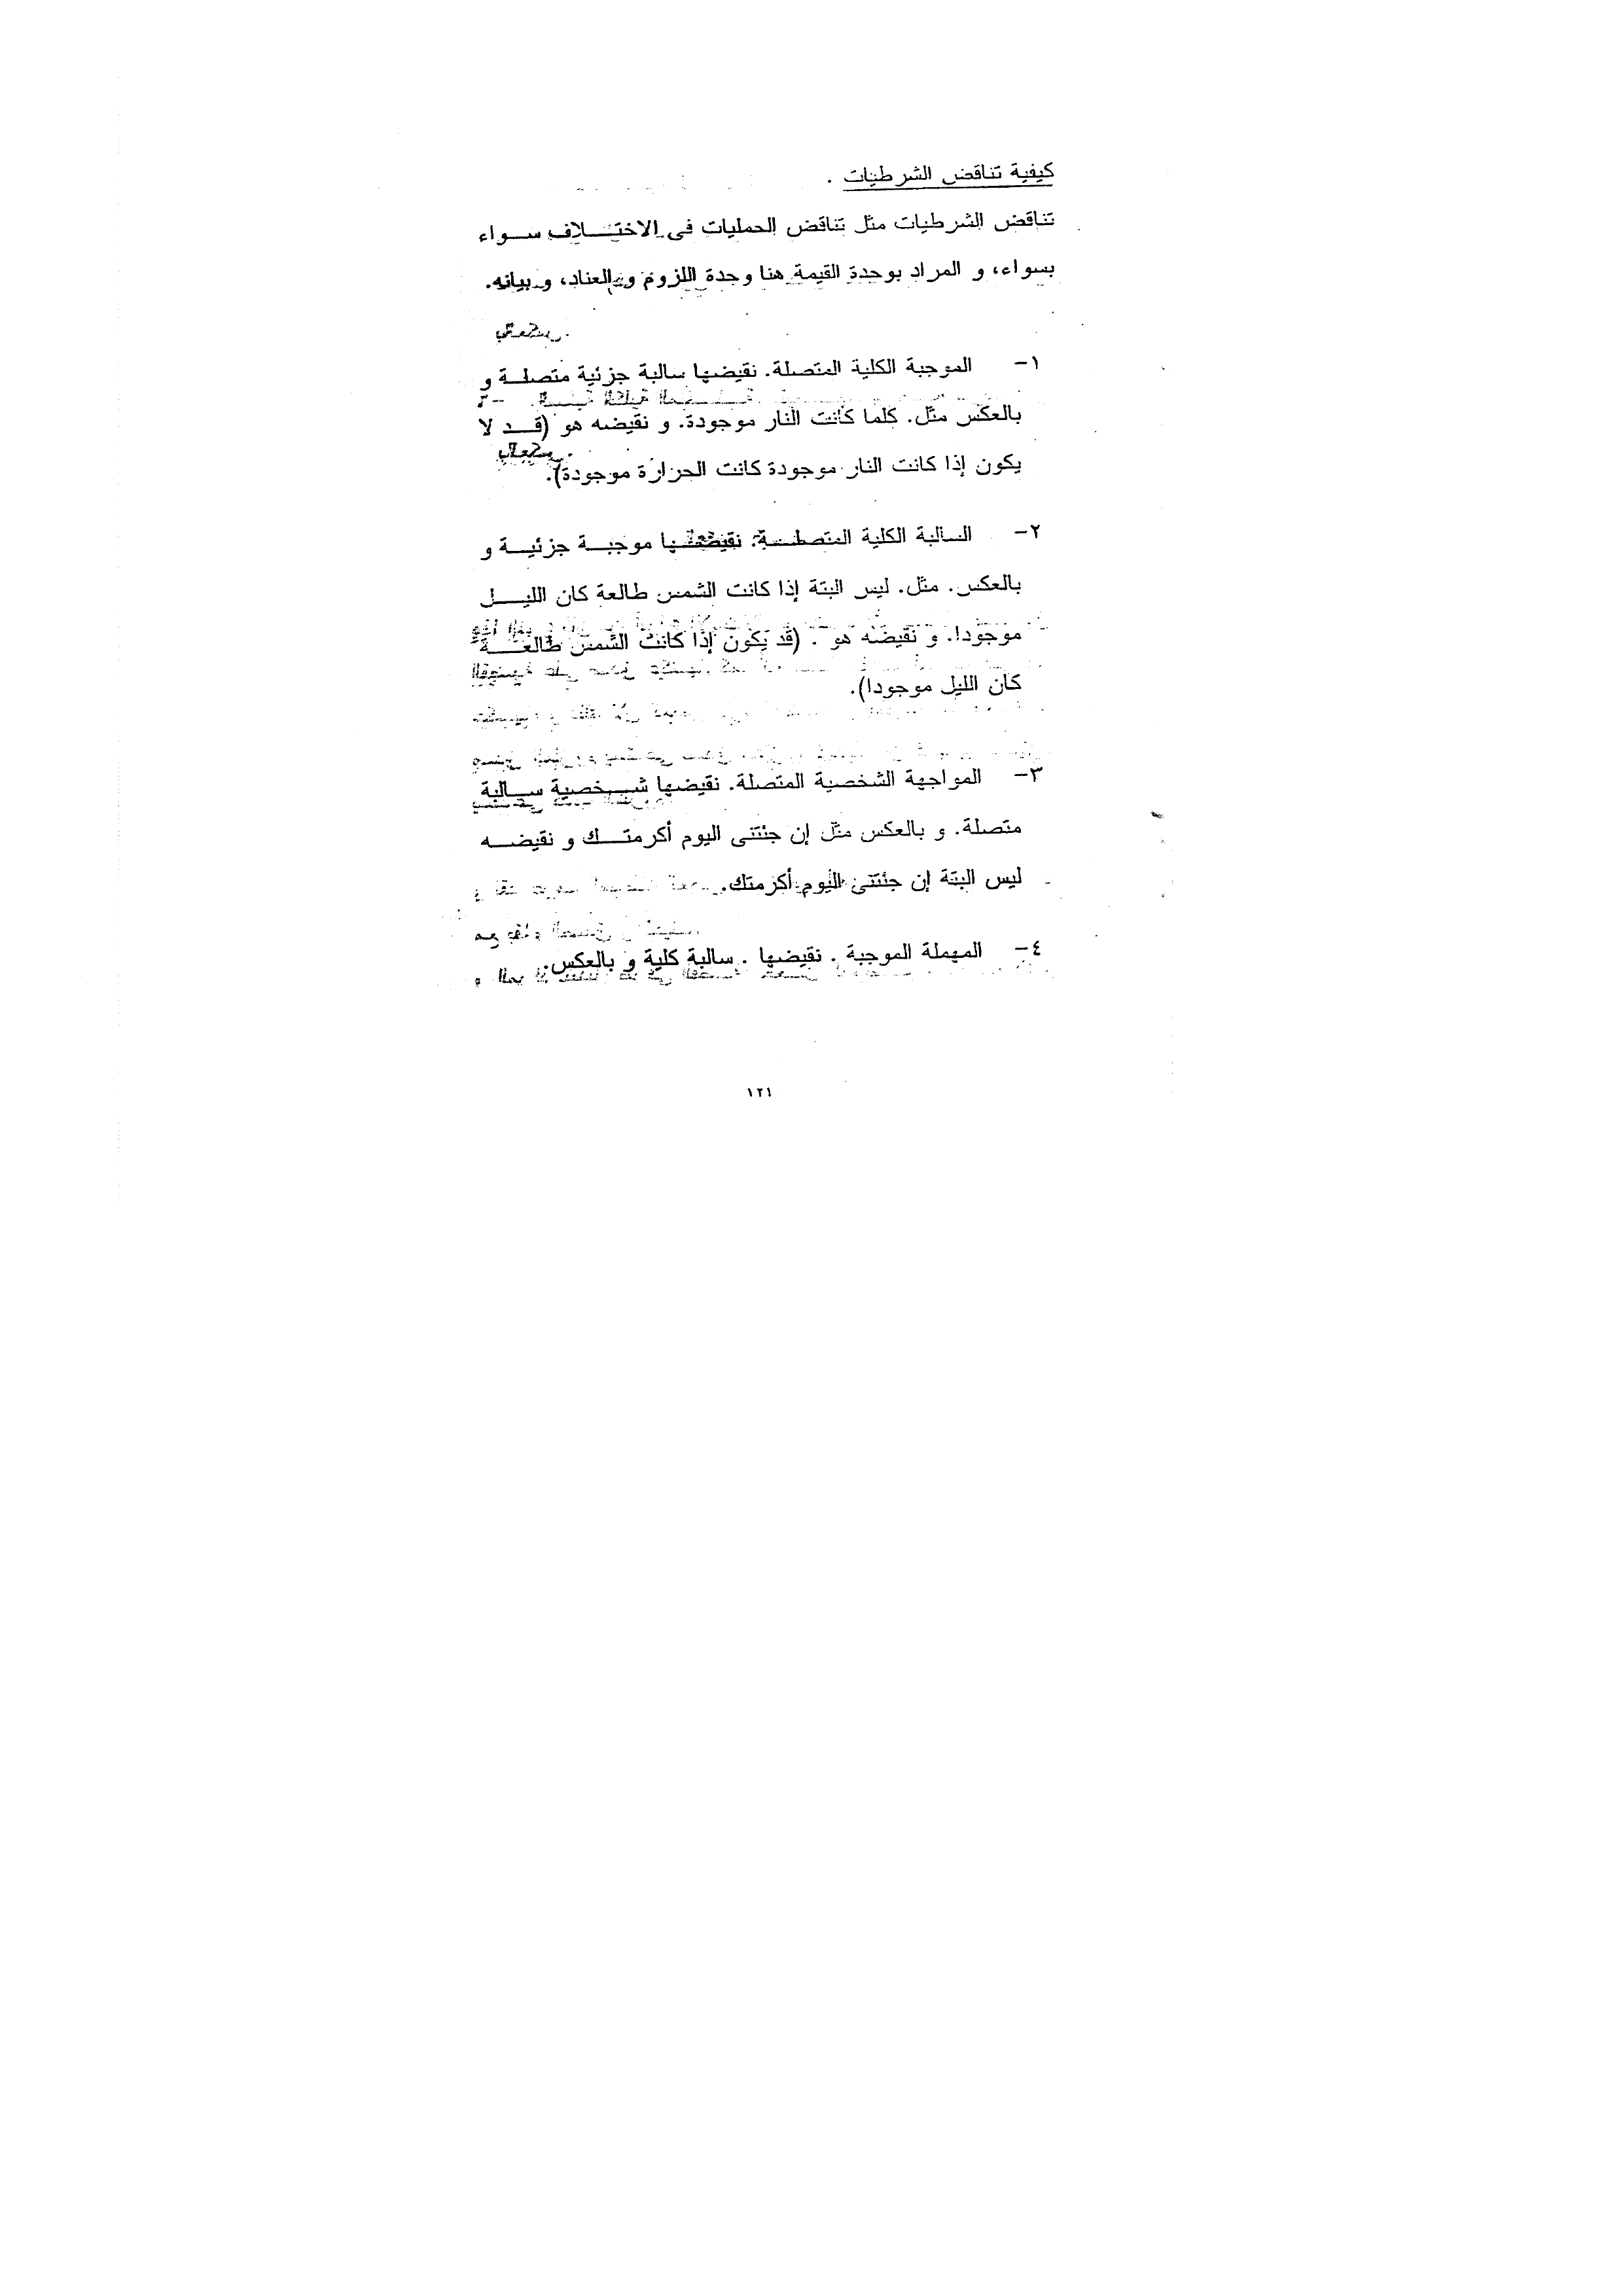 كيفية تناقض الشرطيات .
تناقض الشرطيات مثل تناقض الحمليات فى الاختلاف سواء
بسواء، و المراد بوحدة القيمة هنا وحدة اللزوم و العناد، و بيانه.
١- الموجبة الكلية المتصلة. نقيضها سالبة جزئية متصلة و
بالعكس مثل. كلما كانت النار موجودة. و نقيضه هو (قد لا
يكون إذا كانت النار موجودة كانت الحرارة موجودة).
٢- السالبة الكلية المتصلة. نقيضها موجبة جزئية و
بالعكس. مثل. ليس البتة إذا كانت الشمس طالعة كان الليل
موجودا. و نقيضه هو . (قد يكون إذا كانت الشمس طالعة
كان الليل موجودا).
٣- المواجهة الشخصية المتصلة. نقيضها شخصية سالبة
متصلة. و بالعكس مثل إن جئتنى اليوم أكرمتك و نقيضه
ليس البتة إن جئتنى اليوم أكرمتك.
٤- المهملة الموجبة . نقيضها . سالبة كلية و بالعكس.
١٢١